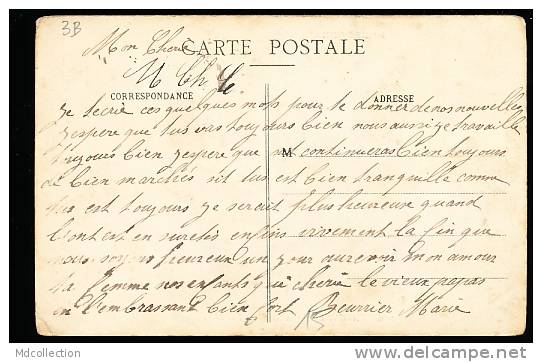 3B
CARTE POSTALE
Mon Cherie
M Ch
CORRESPONDANCE
ADRESSE
je tecrie ces quelques mots pour te donner de nos nouvelles
jespere que tus vas toujours bien nous aussi je travaille
toujours bien jespere que continueras bien toujours
M
de bien marchés sit tus est bien tranquille comme
tus est toujours je serait plus heureuse quand
tont est en suretés enfins vivement la fin que
nous soyons heureux un jour au revoir mon amour
ta femme nos enfants qui cherie le vieux papas
en tembrassant bien fort Beurrier Marie
Mdcollection
delcampe.net